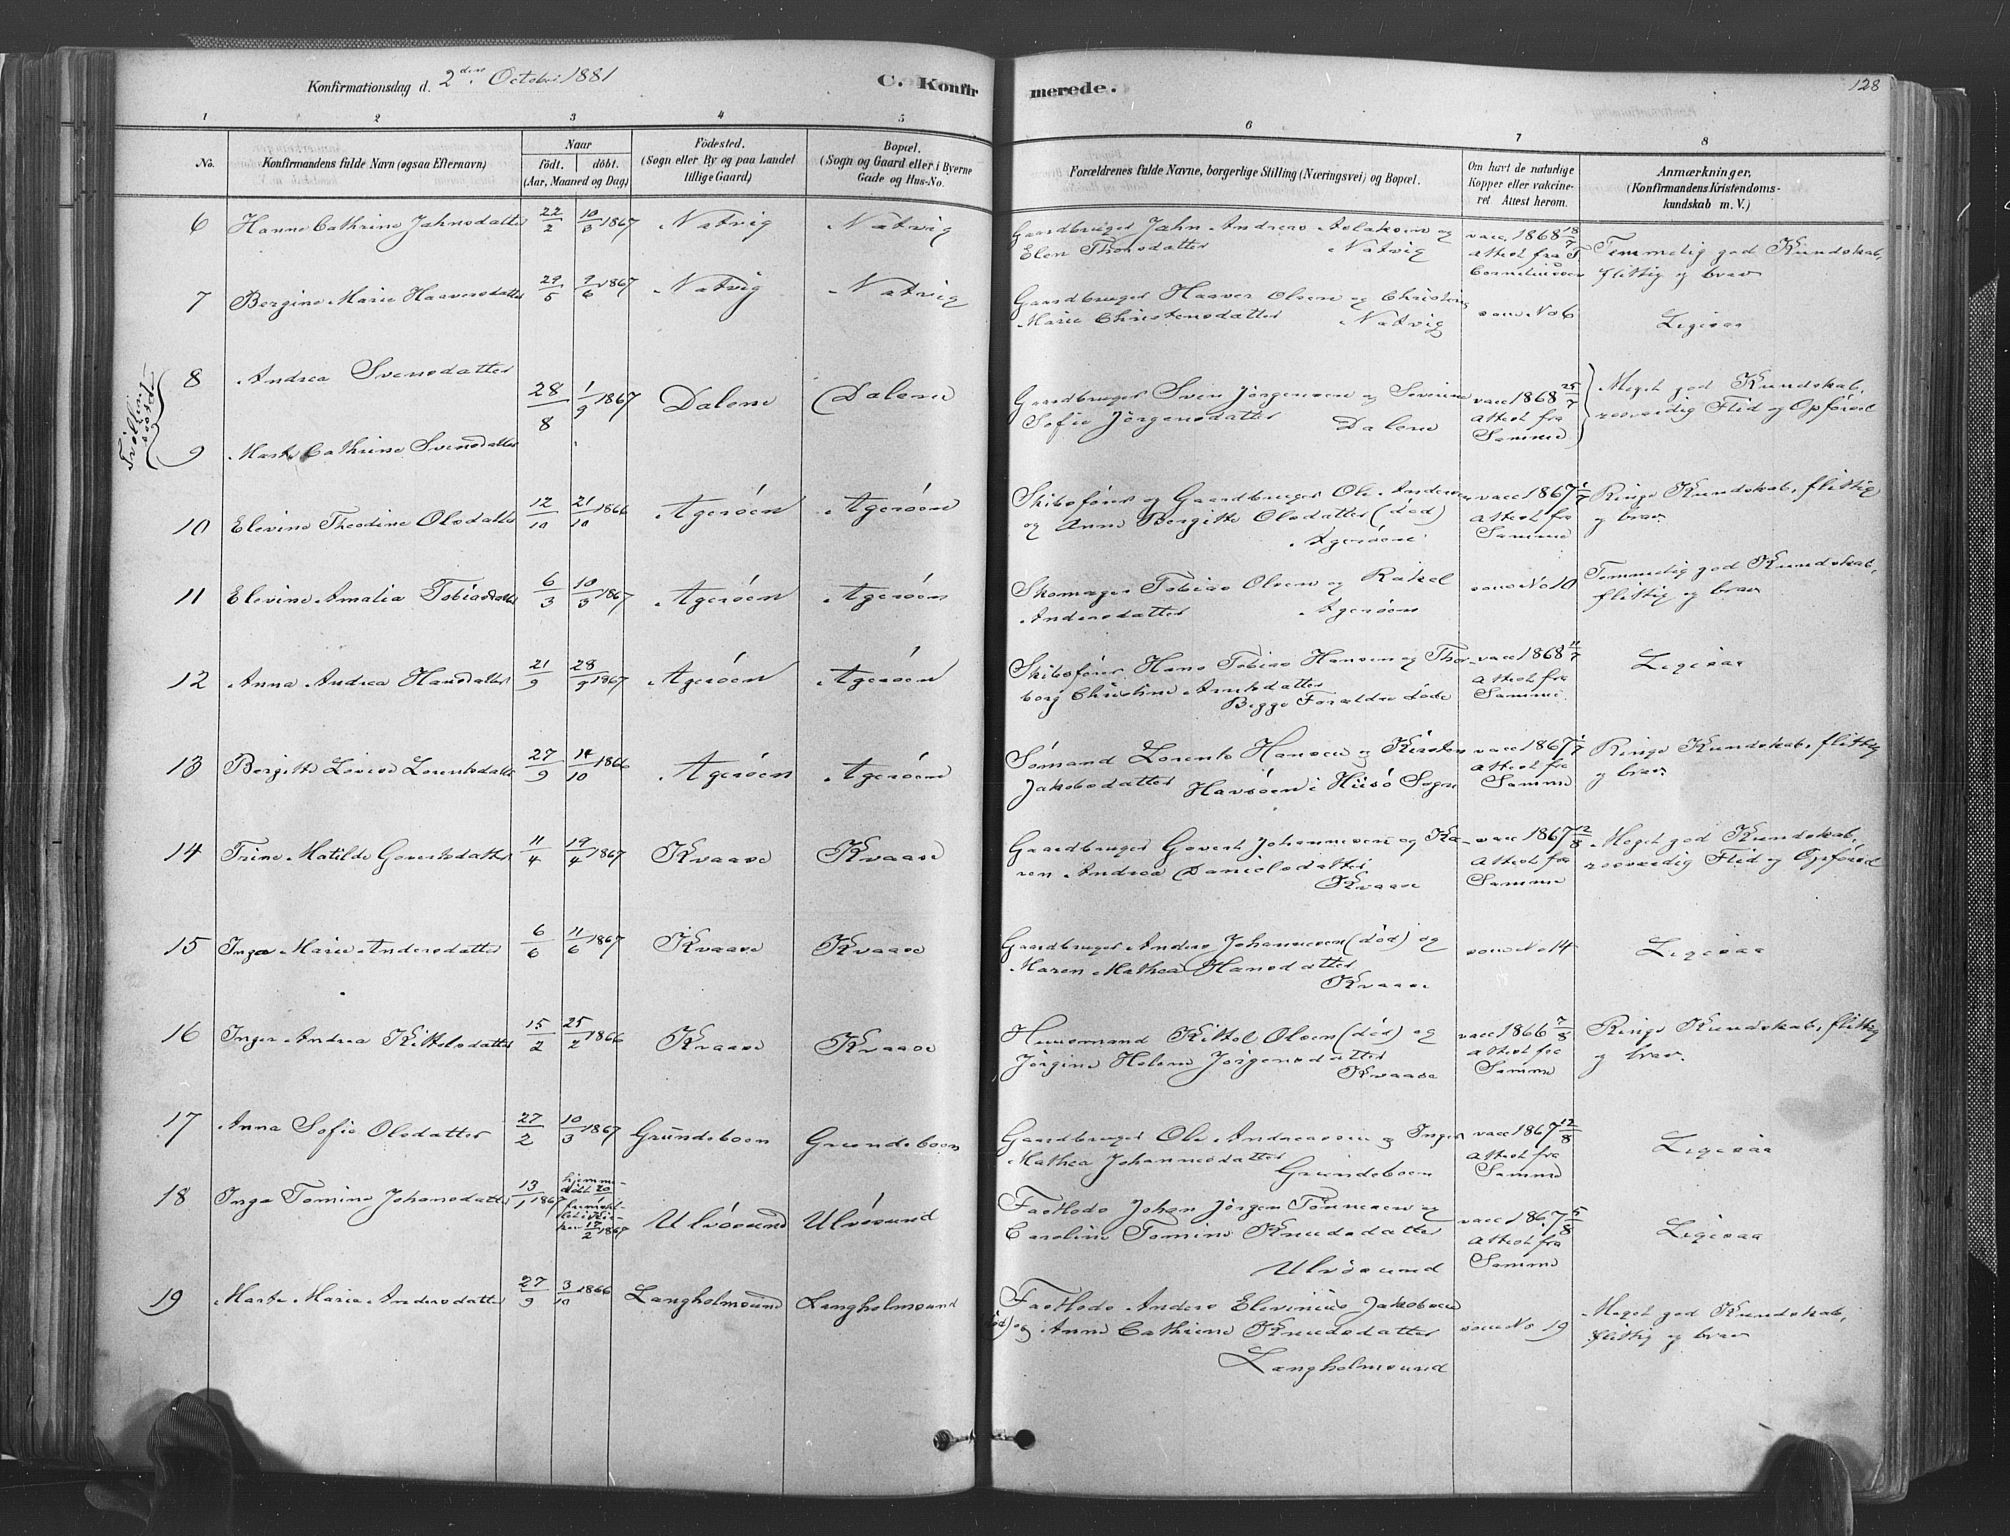 Konfirmationsdag d. 2den October 1881
C. Konfirmerede.
128
1 2 3 4 5 6 7 8
No. Konfirmandens fulde Navn (ogsaa Efternavn) Naar født. døbt. (Aar, Maaned og Dag) Fødested. (Sogn eller By og paa Landet tillige Gaard) Bopæl. (Sogn og Gaard eller i Byerne Gade og Hus-No. Forældrenes fulde Navne, borgerlige Stilling (Næringsvei) og Bopæl. Om havt de naturlige Kopper eller vakcineret Attest herom. Anmærkninger. (Konfirmandens Kristendomskundskab m. V.)
6 Hanne Cathrine Jahnsdatter 22/2 10/3 1867 Natvig Natvig Gaardbruger Jahn Andreas Aslaksen og
Elen Thorsdatter Natvig vacc. 1868 18/7 attest fra T Corneliussen Temmelig god Kundskab, flittig og brav
7 Bergine Marie Haaversdatter 29/5 9/6 1867 Natvig Natvig Gaardbruger Haaver Olsen og Christine
Marie Christensdatter Natvig som No 6 Ligesaa
Tvillingsøstre
8 Andrea Svensdatter
28/8 1/9 1867 Dalene Dalene Gaardbruger Sven Jörgensen og Severine
Sofie Jörgensdatter Dalene vacc 1868 25/7 attest fra Samme Meget god Kundskab, rosværdig Flid og Opförsel
9 Marte Cathrine Svensdatter
10 Elevine Theodine Olsdatter 12/10 21/10 1866 Agerøen Agerøen Skibsförer og Gaardbruger Ole Andersen
og Anne Bergitte Olsdatter (död) Agerøen vacc 1867 1/7 attest fra Samme Ringe Kundskab, flittig og brav
11 Elevine Amalia Tobiasdatter 6/3 10/3 1867 Agerøen Agerøen Skomager Tobias Olsen og Rakel
Andersdatter Agerøen som No 10 Temmelig god Kundskab, flittig og brav
12 Anna Andrea Hansdatter 21/9 28/9 1867 Agerøen Agerøen Skibsförer Hans Tobias Hansen og Thor-
borg Christine Arntsdatter Begge Forældre døde vacc 1868 11/7 attest fra Samme. Ligesaa
13 Bergitte Lovise Lorentsdatter 27/9 14/10 1866 Agerøen Agerøen Sömand Lorents Hansen og Kirsten
Jakobsdatter Havsöen i Hisö Sogn vacc 1867 1/7 attest fra Samme Ringe Kundskab, flittig og brav.
14 Trine Matilde Govertsdatter 11/4 19/4 1867 Kvaase Kvaase Gaardbruger Govert Johannesen og Ka-
ren Andrea Danielsdatter Kvaase vacc 1867 12/8 attest fra Samme Meget god Kundskab, rosværdig Flid og Opförsel
15 Inga Marie Andersdatter 6/6 11/6 1867 Kvaase Kvaase Gaardbruger Anders Johannesen (död) og
Maren Mathea Hansdatter Kvaase som No 14 Ligesaa
16 Inger Andrea Kittelsdatter 15/2 25/2 1866 Kvaase Kvaase Huusmand Kittel Olsen (död) og
Jörgine Helene Jörgensdatter Kvaase vacc 1866 7/8 attest fra Samme Ringe Kundskab, flittig og brav.
17 Anna Sofie Olsdatter 27/2 10/3 1867 Grundeboen Grundeboen Gaardbruger Ole Andreassen og Inger
Mathea Johannesdatter Grundeboen vacc 1867 12/8 attest fra Samme Ligesaa
18 Inga Tomine Johansdatter 13/1 1867 hjemmedöbt 20/1 fremstillet i Kirken 17/2 1867 Ulvösund Ulvösund Fastlods Johan Jörgen Tönnesen og
Caroline Tomine Knudsdatter
Ulvösund vacc 1867 5/8 attest fra Samme Ligesaa
19 Marte Maria Andersdatter 27/9 3/10 1866 Langholmsund Langholmsund Fastlods Anders Elevinius Jakobsen
(död) og Anne Cathrine Knudsdatter
Langholmsund som No 19 Meget god Kundskab, flittig og brav